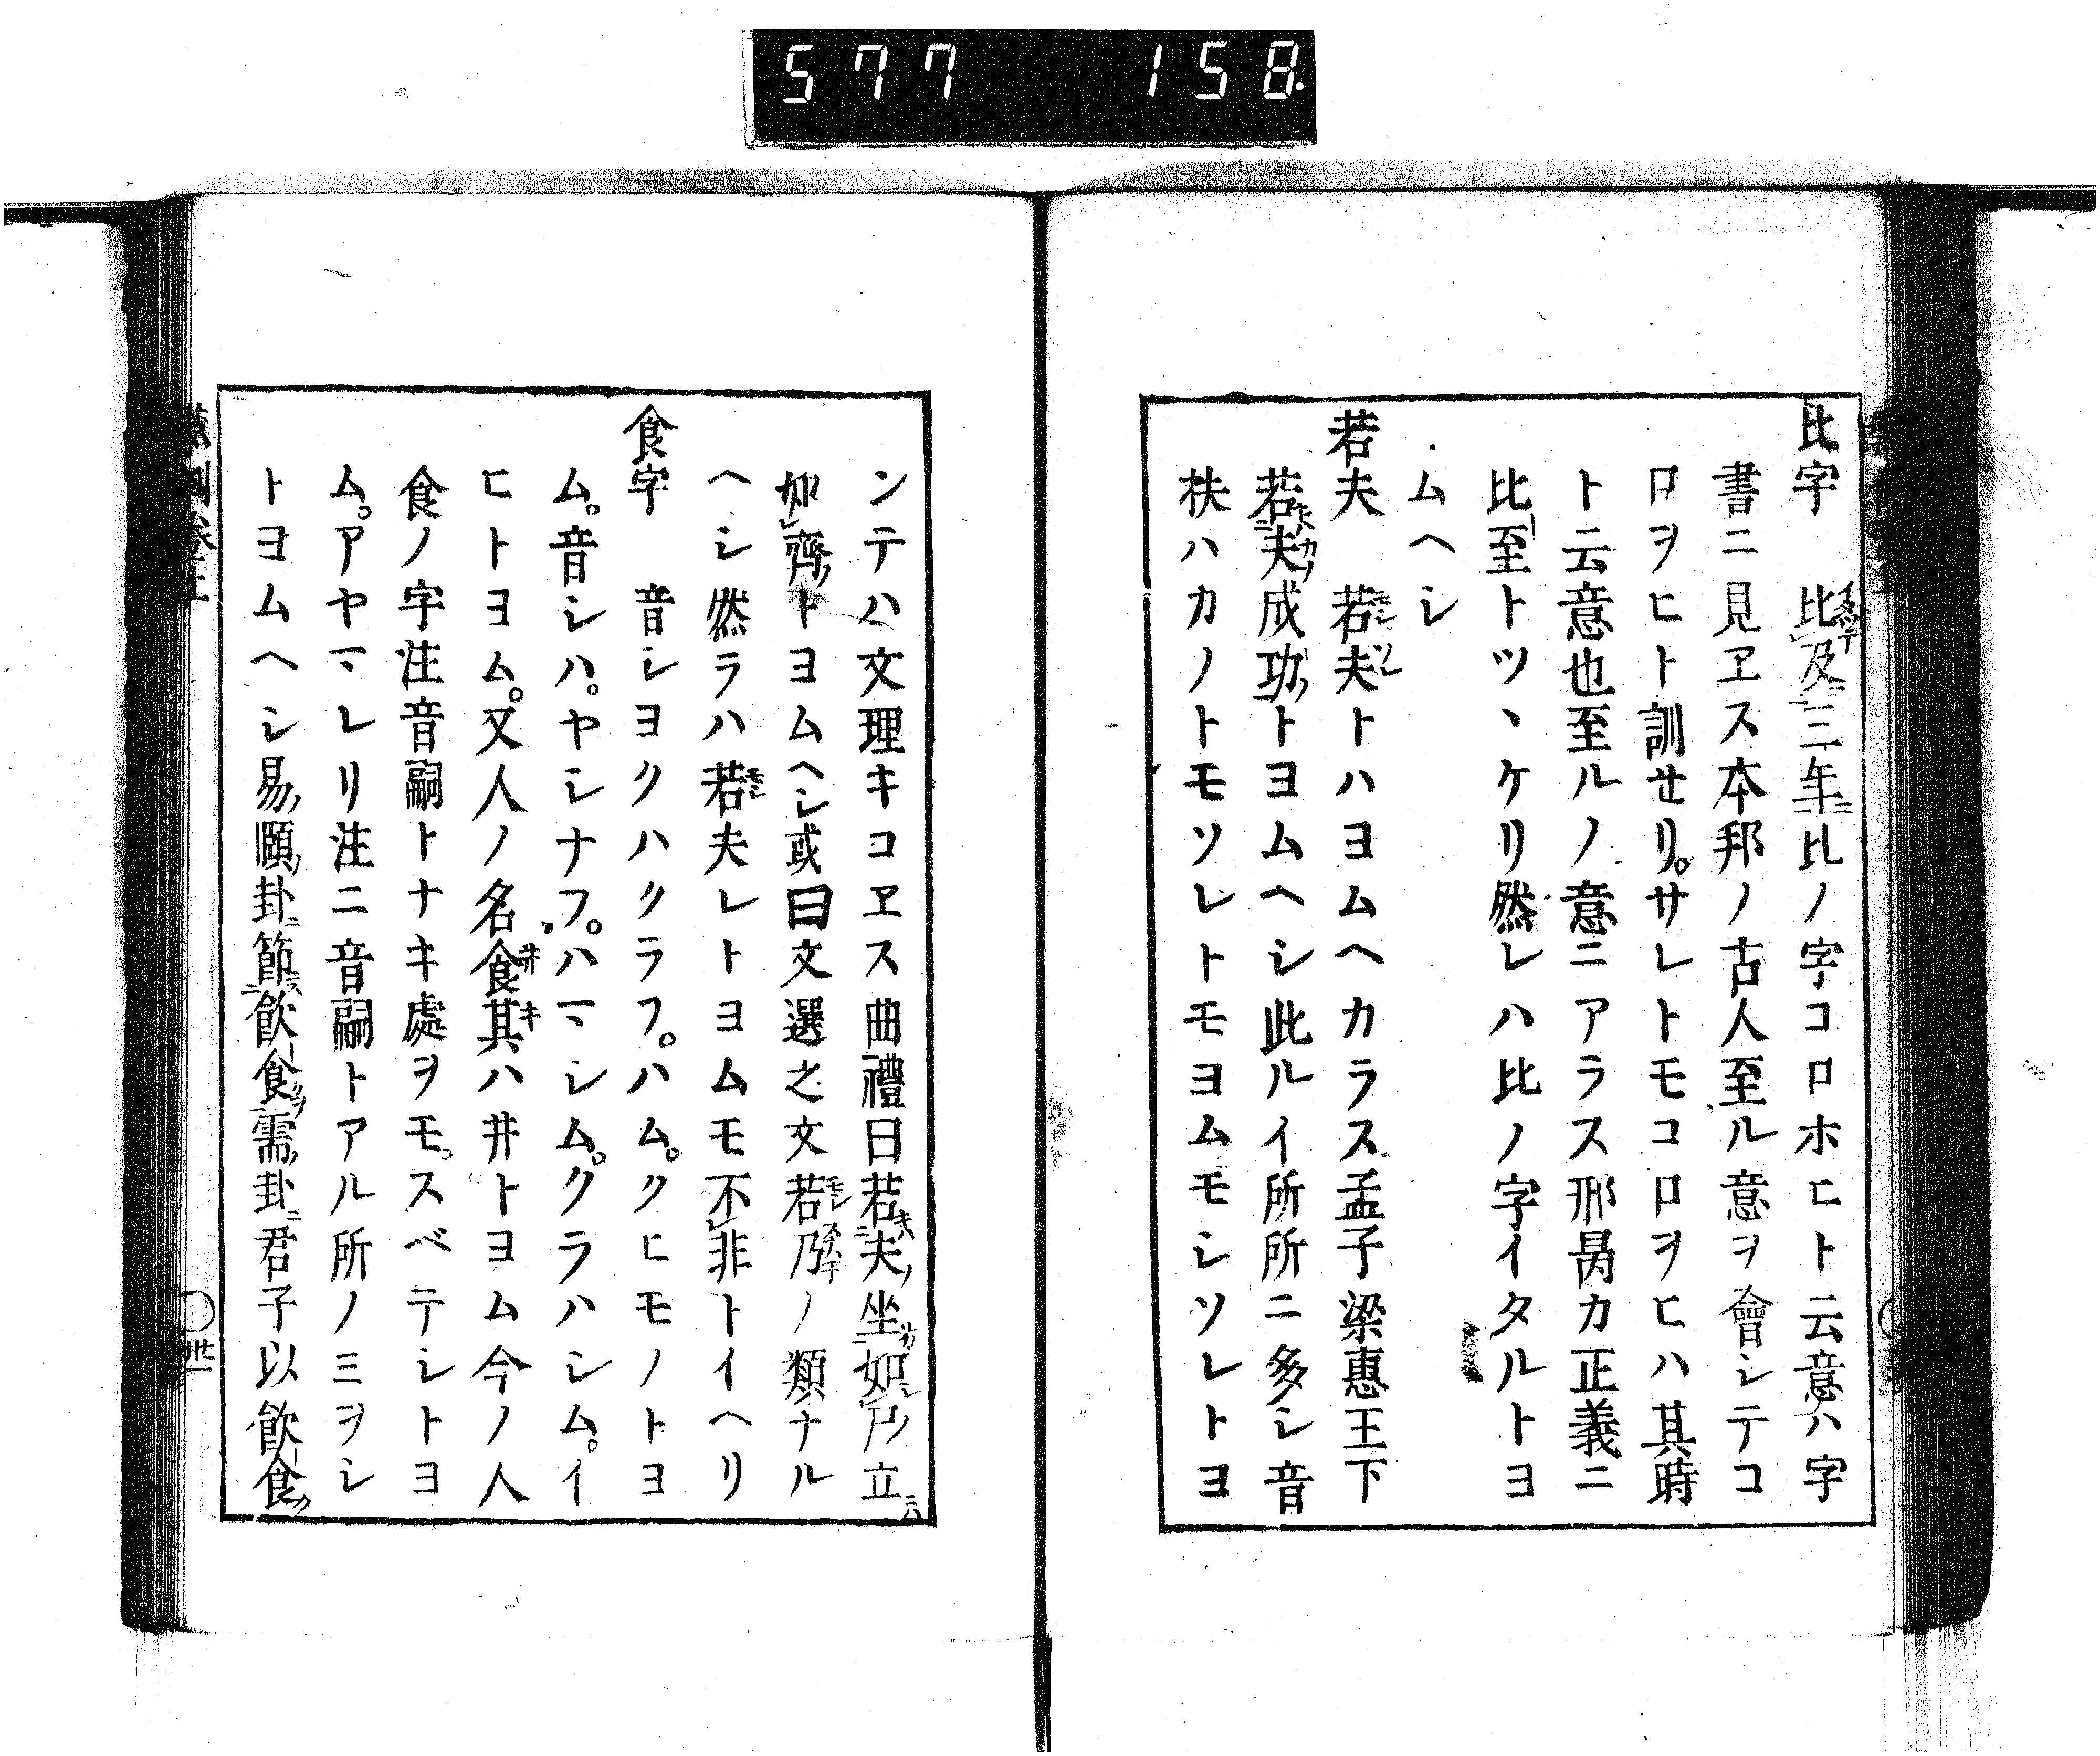 577 158
比字 比及三年比ノ字コロホヒト云意ハ字
書ニ見ヱス本邦ノ古人至ル意ヲ會シテコ
ロヲヒト訓せリ。サレトモコロヲヒハ其時
ト云意也至ルノ意ニアラス邢昺カ正義ニ
比至トツヽケリ然レハ比ノ字イタルトヨ
ムヘシ
若夫 若夫トハヨムヘカラス孟子梁惠王下
若夫成功トヨムヘシ此ルイ所所ニ多シ音
扶ハカノトモソレトモヨムモシソレトヨ
ンテハ文理キコヱス曲禮曰若夫坐如尸立
如齊トヨムヘシ或曰文選之文若乃ノ類ナル
ヘシ然ラハ若夫レトヨムモ不非トイヘリ
食字 音シヨクハクラフ。ハム。クヒモノトヨ
ム。音シハ。ヤシナフ。ハマシム。クラハシム。イ
ヒトヨム。又人ノ名食其ハ井トヨム今ノ人
食ノ字注音嗣トナキ處ヲモ。スベテシトヨ
ム。アヤマレリ注ニ音嗣トアル所ノミヲシ
トヨムヘシ易頤卦節飮食需卦君子以飮食